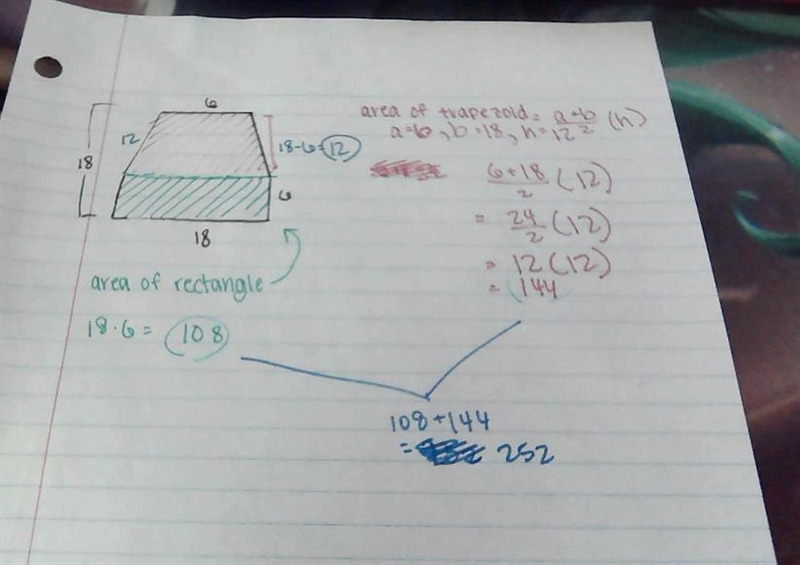 6
12
18
18-6=12
6
18
area of rectangle
18·6 = 108
area of trapezoid = a+b/2 (h)
a=6, b=18, h=12
6+18/2 (12)
= 24/2 (12)
= 12(12)
= 144
108+144
= 252